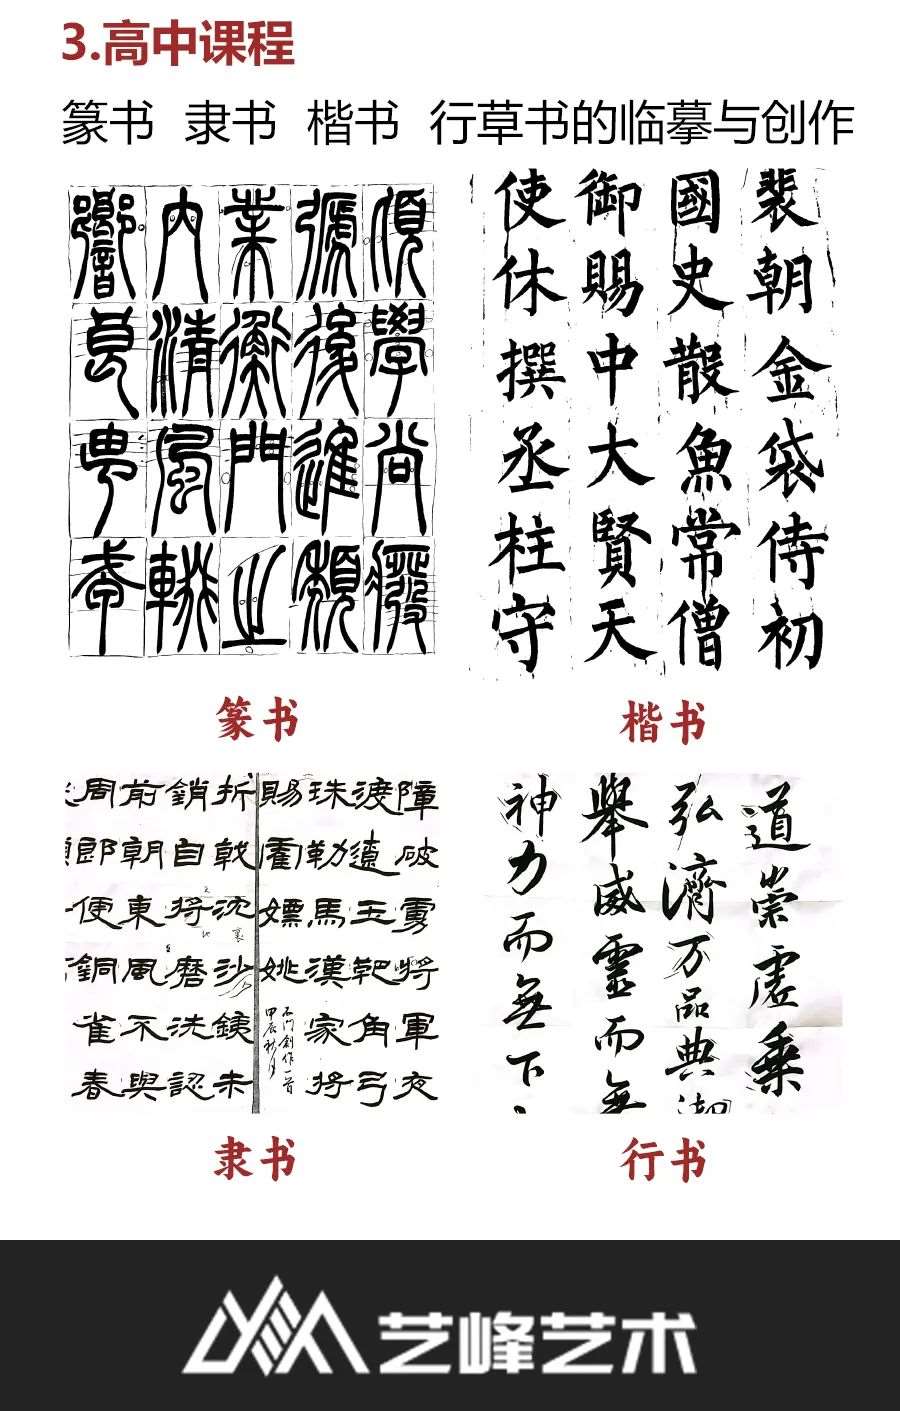 3.高中课程
篆书 隶书 楷书 行草书的临摹与创作
學尚
後進
業衡門止
内清風
響良
裴朝金袋侍初
國史散魚常僧
御賜中大賢天
使休撰丞柱守
篆书
楷书
障破虜將軍夜
渡遼玉靶角弓
珠勒馬漢家將
賜霍嫖姚
石门創作一首
甲辰秋月
折戟沈沙鐵未
銷自將磨洗認
前朝東風不與
周郎便銅雀春
道崇虛乘
弘濟万品典御
舉威靈而無
神力而無下
隶书
行书
艺峰艺术